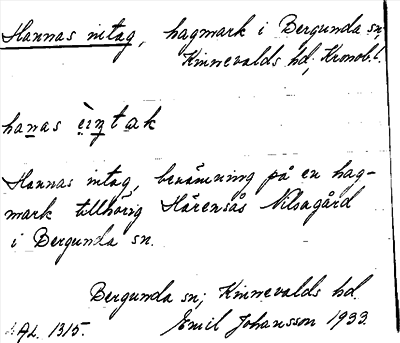 Hannas intag, hagmark i Bergunda sn,
Kinnevalds hd, Kronob.l.
hanas ìntak
Hannas intag, benämning på en hag-
mark tillhörig Härensås Nilsagård
i Bergunda sn.
Bergunda sn; Kinnevalds hd.
AL. 1315. Emil Johansson 1933.